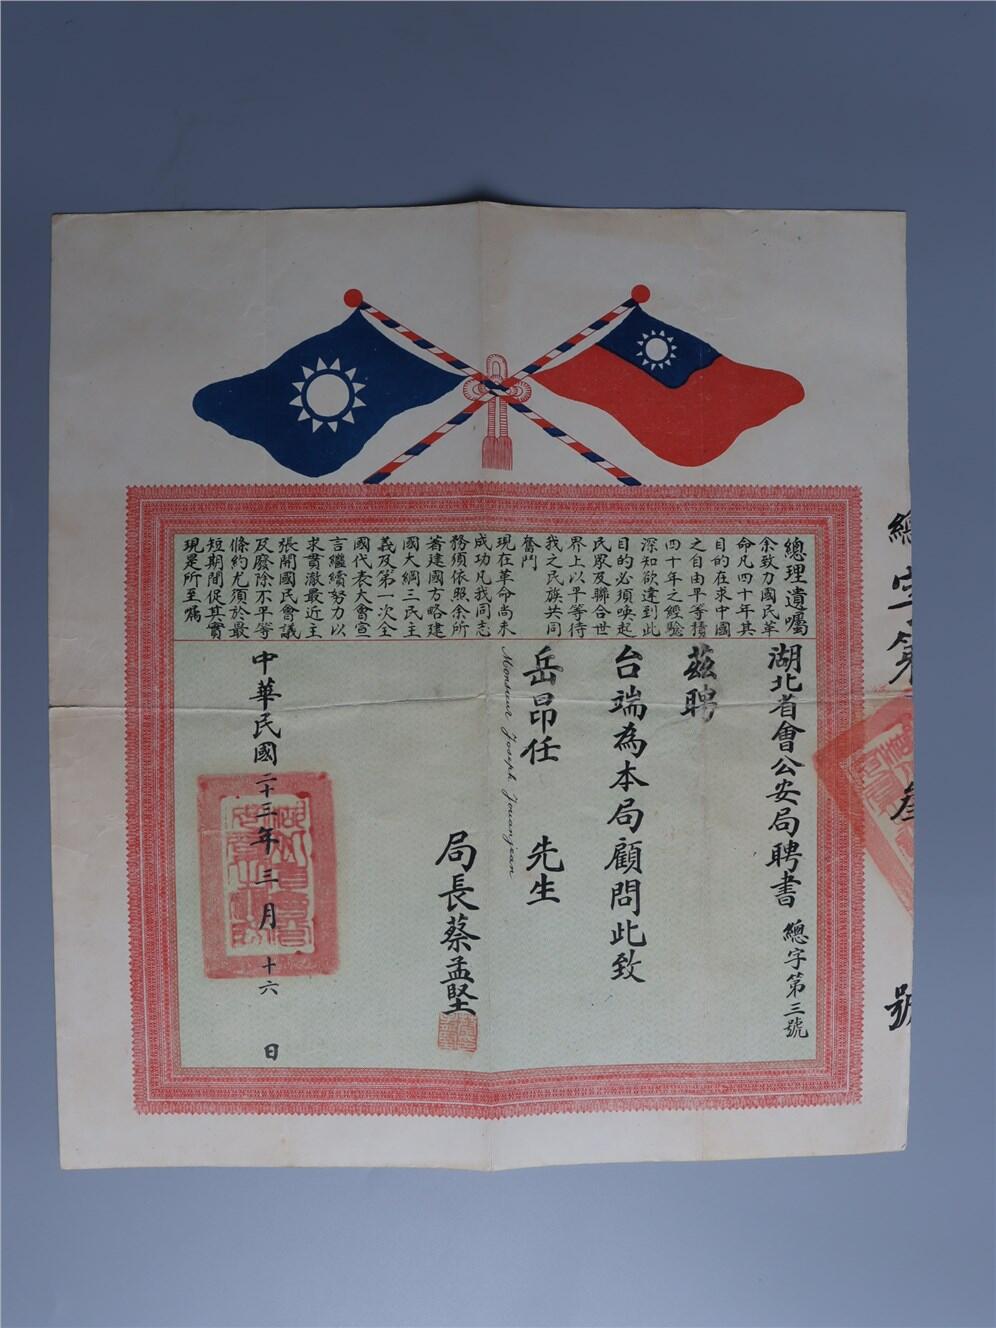 總理遺囑
余致力國民革
命凡四十年其
目的在求中國
之自由平等積
四十年之經驗
深知欲達到此
目的必須喚起
民眾及聯合世
界上以平等待
我之民族共同
奮鬥
現在革命尚未
成功凡我同志
務須依照余所
著建國方略建
國大綱三民主
義及第一次全
國代表大會宣
言繼續努力以
求貫澈最近主
張開國民會議
及廢除不平等
條約尤須於最
短期間促其實
現是所至囑
湖北省會公安局聘書 總字第三號
茲聘
台端為本局顧問此致
岳昂任 先生
Monsieur Joseph Jouanjean
局長蔡孟堅
中華民國二十三年三月十六日
總字第叁號